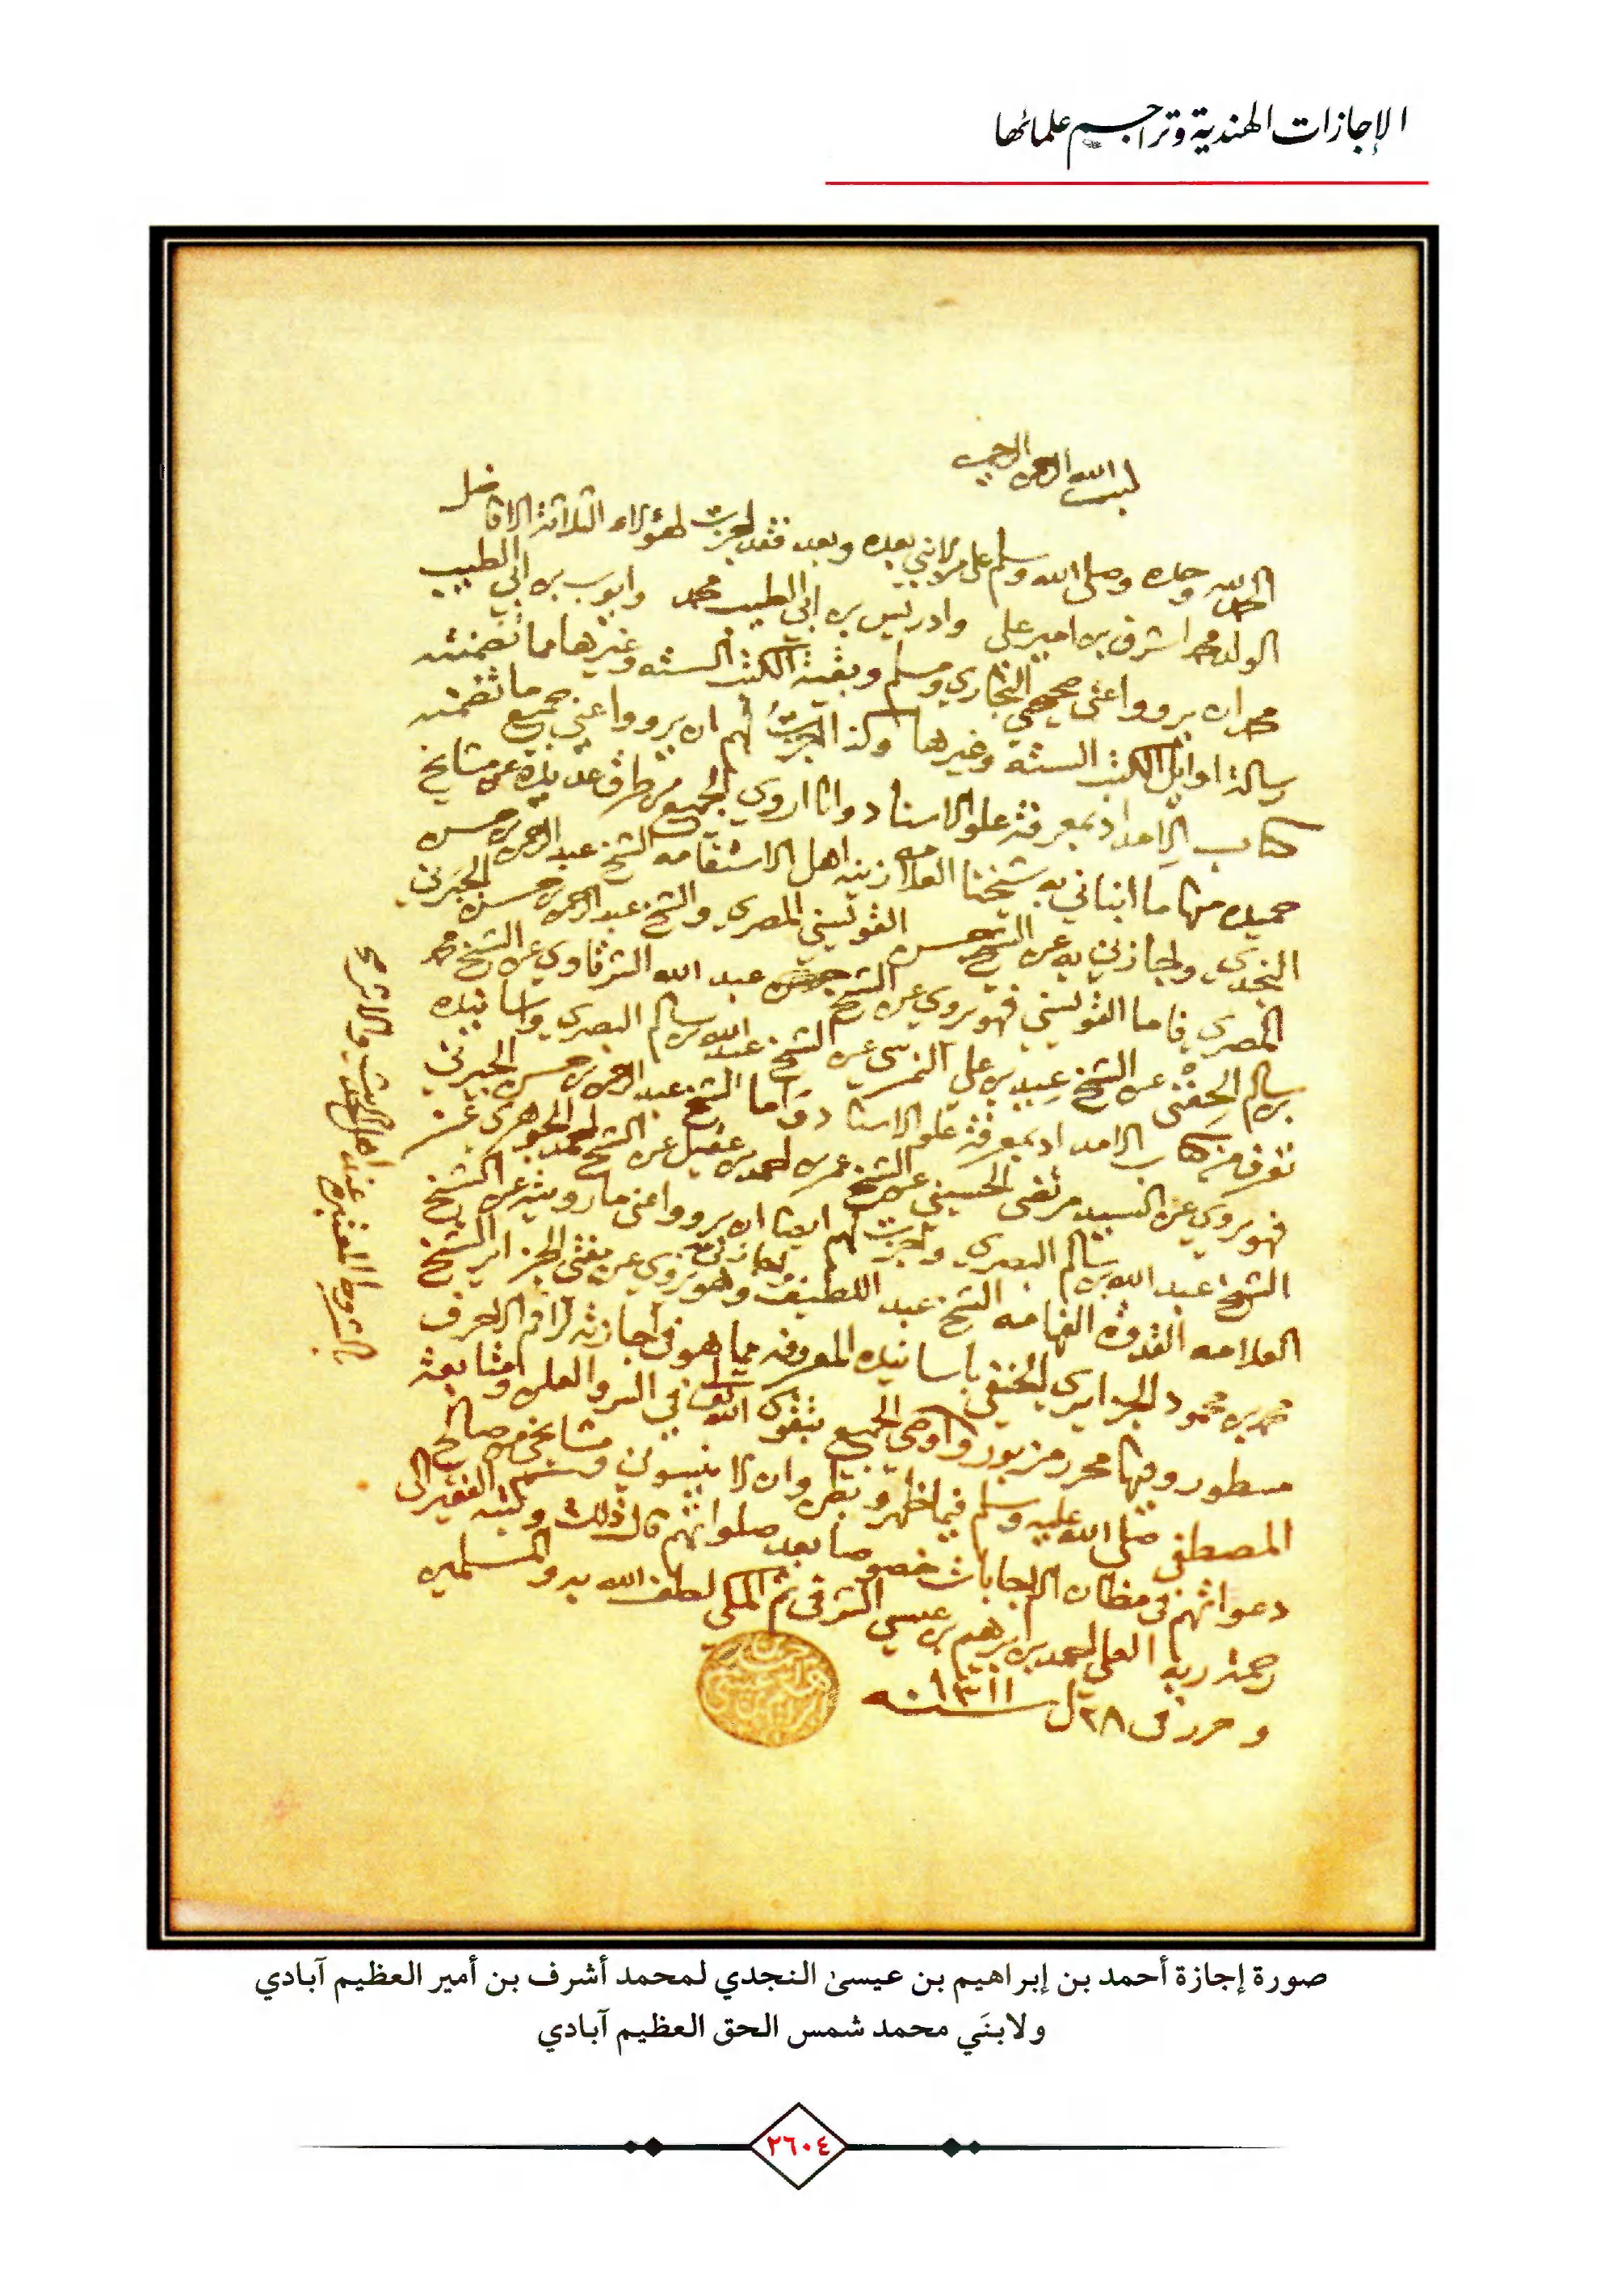 الإجازات الهندية وتراجم علمائها
بسم الله الرحمن الرحيم
الحمد لله وحده وصلى الله وسلم على من لا نبي بعده وبعد فقد اجزت لهؤلاء الثلاثة الافاضل
الولد محمد اشرف بن امير علي وادريس بن ابي الطيب محمد وايوب بن ابي الطيب
محمد ان يرووا عني صحيحي البخاري ومسلم وبقية الكتب الستة وغيرها مما تضمنته
رسالة اوايل الكتب الستة وغيرها وكذا اجزت لهم ان يرووا عني جميع ما تضمنه
كتاب الامداد بمعرفة علو الاسناد وانا اروي الجميع من طرق عديدة عن مشايخ
حميدة منها ما انباني به شيخنا العلامه زينة اهل الاستقامه الشيخ عبد الرحمن بن حسن
النجدي واجازني به عن الشيخ حسن القويسني المصري والشيخ عبد الرحمن بن حسن الجبرتي
المصري فاما القويسني فهو يروي عن الشيخ عبد الله الشرقاوي عن الشيخ محمد
بن سالم الحفني عن الشيخ عبيد بن علي النمرسي عن الشيخ عبد الله بن سالم البصري واسانيده
تعرف من كتاب الامداد بمعرفة علو الاسناد واما الشيخ عبد الرحمن بن حسن الجبرتي
فهو يروي عن السيد مرتضى الحسيني عن الشيخ عمر بن احمد بن عقيل عن الشيخ احمد الجوهري عن
الشيخ عبد الله بن سالم البصري واجزت لهم ايضا ان يرووا عني ما رويته عن الشيخ
العلامه القدوة الفهامه الشيخ عبد اللطيف وهو يروي عن مفتي الجزاير الشيخ
محمد بن محمود الجزايري الحنفي باسانيده المعروفه مما هو في اجازته لراقم الاحرف
مسطور وفيها محرر مزبور واوصي الجميع بتقوى الله تعالى في السر والعلن ومتابعة
المصطفى صلى الله عليه وسلم فيما ظهر وبطن وان لا ينسوني ومشايخي من صالح
دعواتهم في مظان الاجابات خصوصا بعد صلواتهم قال ذلك وكتبه الفقير الى
رحمة ربه العلي احمد بن ابرهيم بن عيسى الشرقي ثم المكي لطف الله به والمسلمين
وحرر في ٢٨ ل سنه ١٣١١
بالشروط المعتبره عند اهل الحديث والاثر
صورة إجازة أحمد بن إبراهيم بن عيسىٰ النجدي لمحمد أشرف بن أمير العظيم آبادي
ولابنَي محمد شمس الحق العظيم آبادي
٢٦٠٤